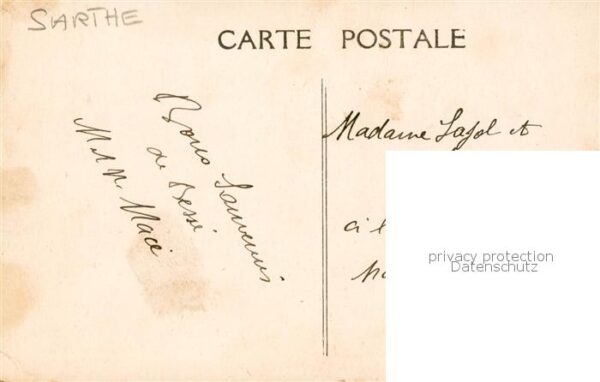 SARTHE
CARTE POSTALE
Bons Souvenirs
de Bessé
M et Me Macé
Madame Lafol et
ci
privacy protection
Datenschutz